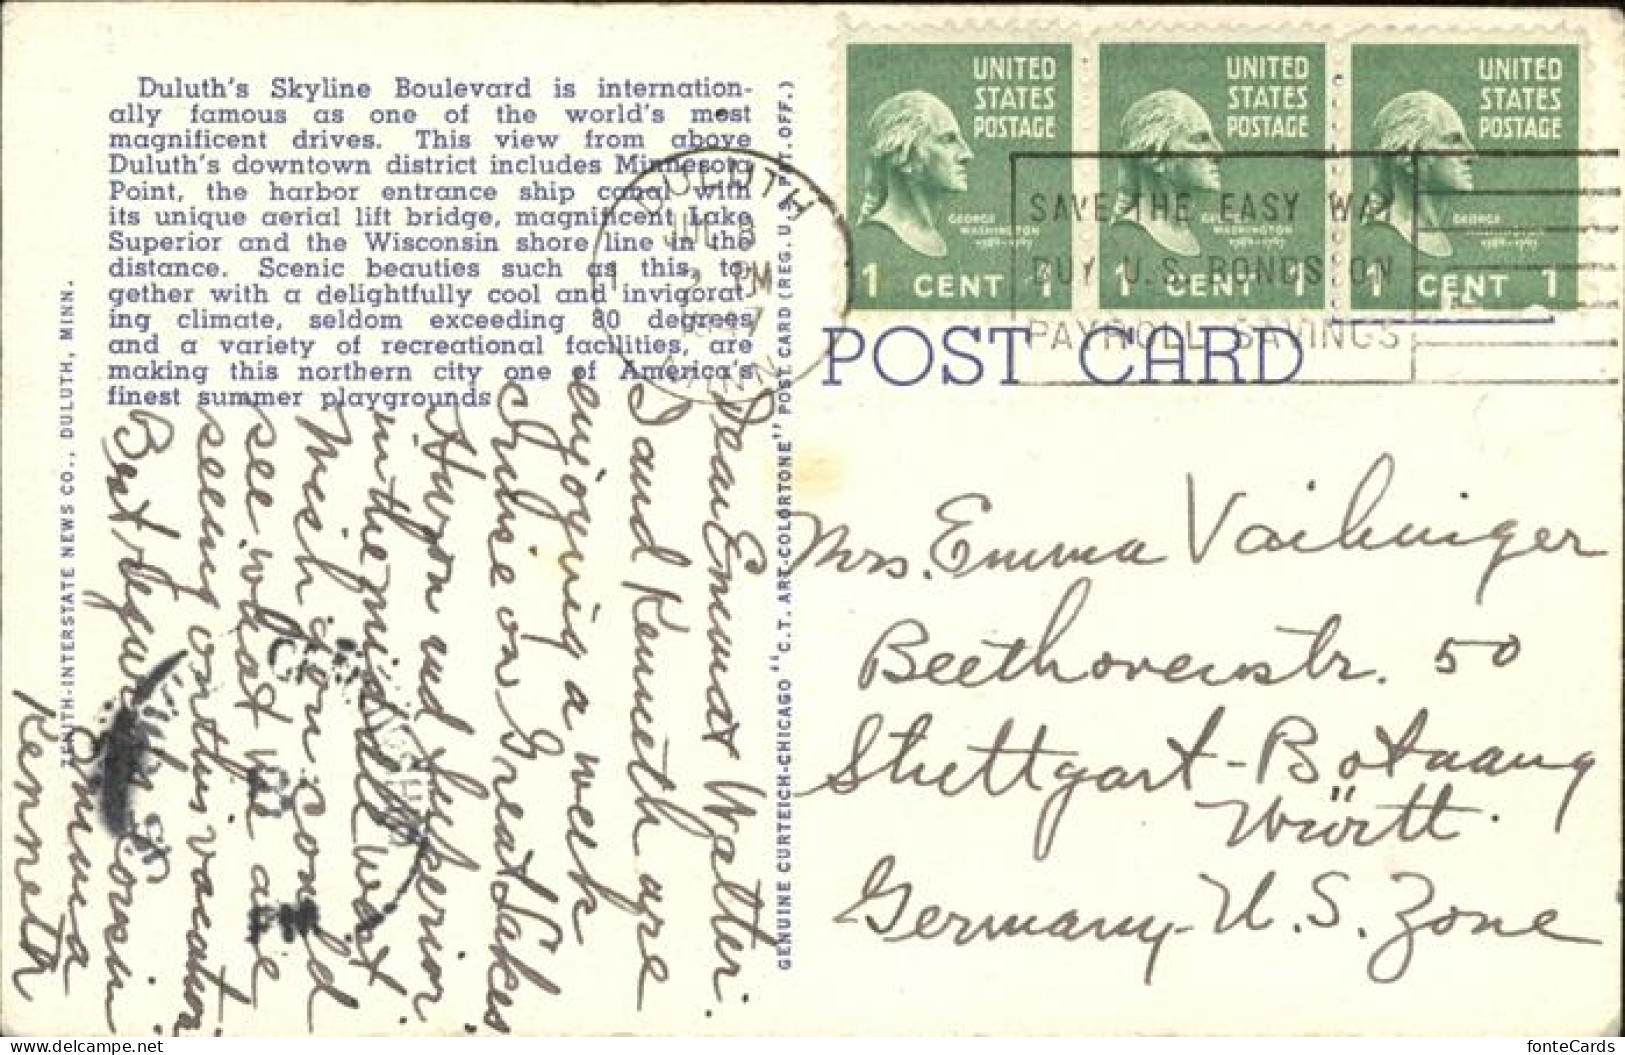 Duluth's Skyline Boulevard is internation-
ally famous as one of the world's most
magnificent drives. This view from above
Duluth's downtown district includes Minnesota
Point, the harbor entrance ship canal with
its unique aerial lift bridge, magnificent Lake
Superior and the Wisconsin shore line in the
distance. Scenic beauties such as this, to-
gether with a delightfully cool and invigorat-
ing climate, seldom exceeding 80 degrees
and a variety of recreational facilities, are
making this northern city one of America's
finest summer playgrounds
ZENITH-INTERSTATE NEWS CO., DULUTH, MINN.
Dear Emma & Walter.
I and Kenneth are
enjoying a week
Cruise on Great Lakes
Huron and Superior
in the middle West
Wish you could
see what we are
seeing on this vacation
Best Regards Cousin
Emma
Kenneth
GENUINE CURTEICH-CHICAGO "C.T. ART-COLORTONE" POST CARD (REG. U.S. PAT. OFF.)
UNITED
STATES
POSTAGE
GEORGE
WASHINGTON
1789-1797
1 CENT 1
UNITED
STATES
POSTAGE
GEORGE
WASHINGTON
1789-1797
1 CENT 1
UNITED
STATES
POSTAGE
GEORGE
WASHINGTON
1789-1797
1 CENT 1
DULUTH
2 PM
MINN.
SAVE THE EASY WAY
BUY U.S. BONDS ON
PAYROLL SAVINGS
POST CARD
Mrs. Emma Vaihinger
Beethovenstr. 50
Stuttgart-Botnang
Württ.
Germany-U.S. Zone
fonteCards